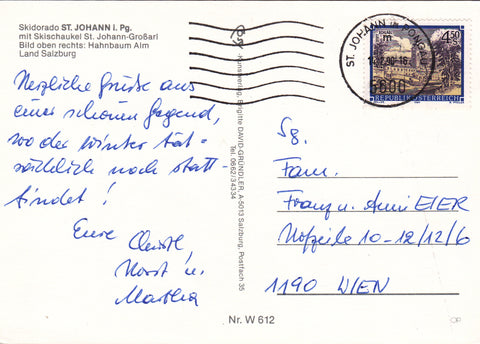 Skidorado ST. JOHANN i. Pg.
mit Skischaukel St. Johann-Großarl
Bild oben rechts: Hahnbaum Alm
Land Salzburg
Herzliche Grüße aus
einer schönen Gegend,
wo der Winter tat-
sächlich noch statt-
findet!
Eure
Christl,
Horst u.
Martha
Kunstverlag, Brigitte DAVID-GRÜNDLER, A-5013 Salzburg, Postfach 35
Tel. 0662/34334
ST. JOHANN IM PONGAU
5600
4.50
REPUBLIK ÖSTERREICH
Sg.
Fam.
Franz u. Anni EIER
Hofzeile 10-12/12/6
1190 WIEN
Nr. W 612